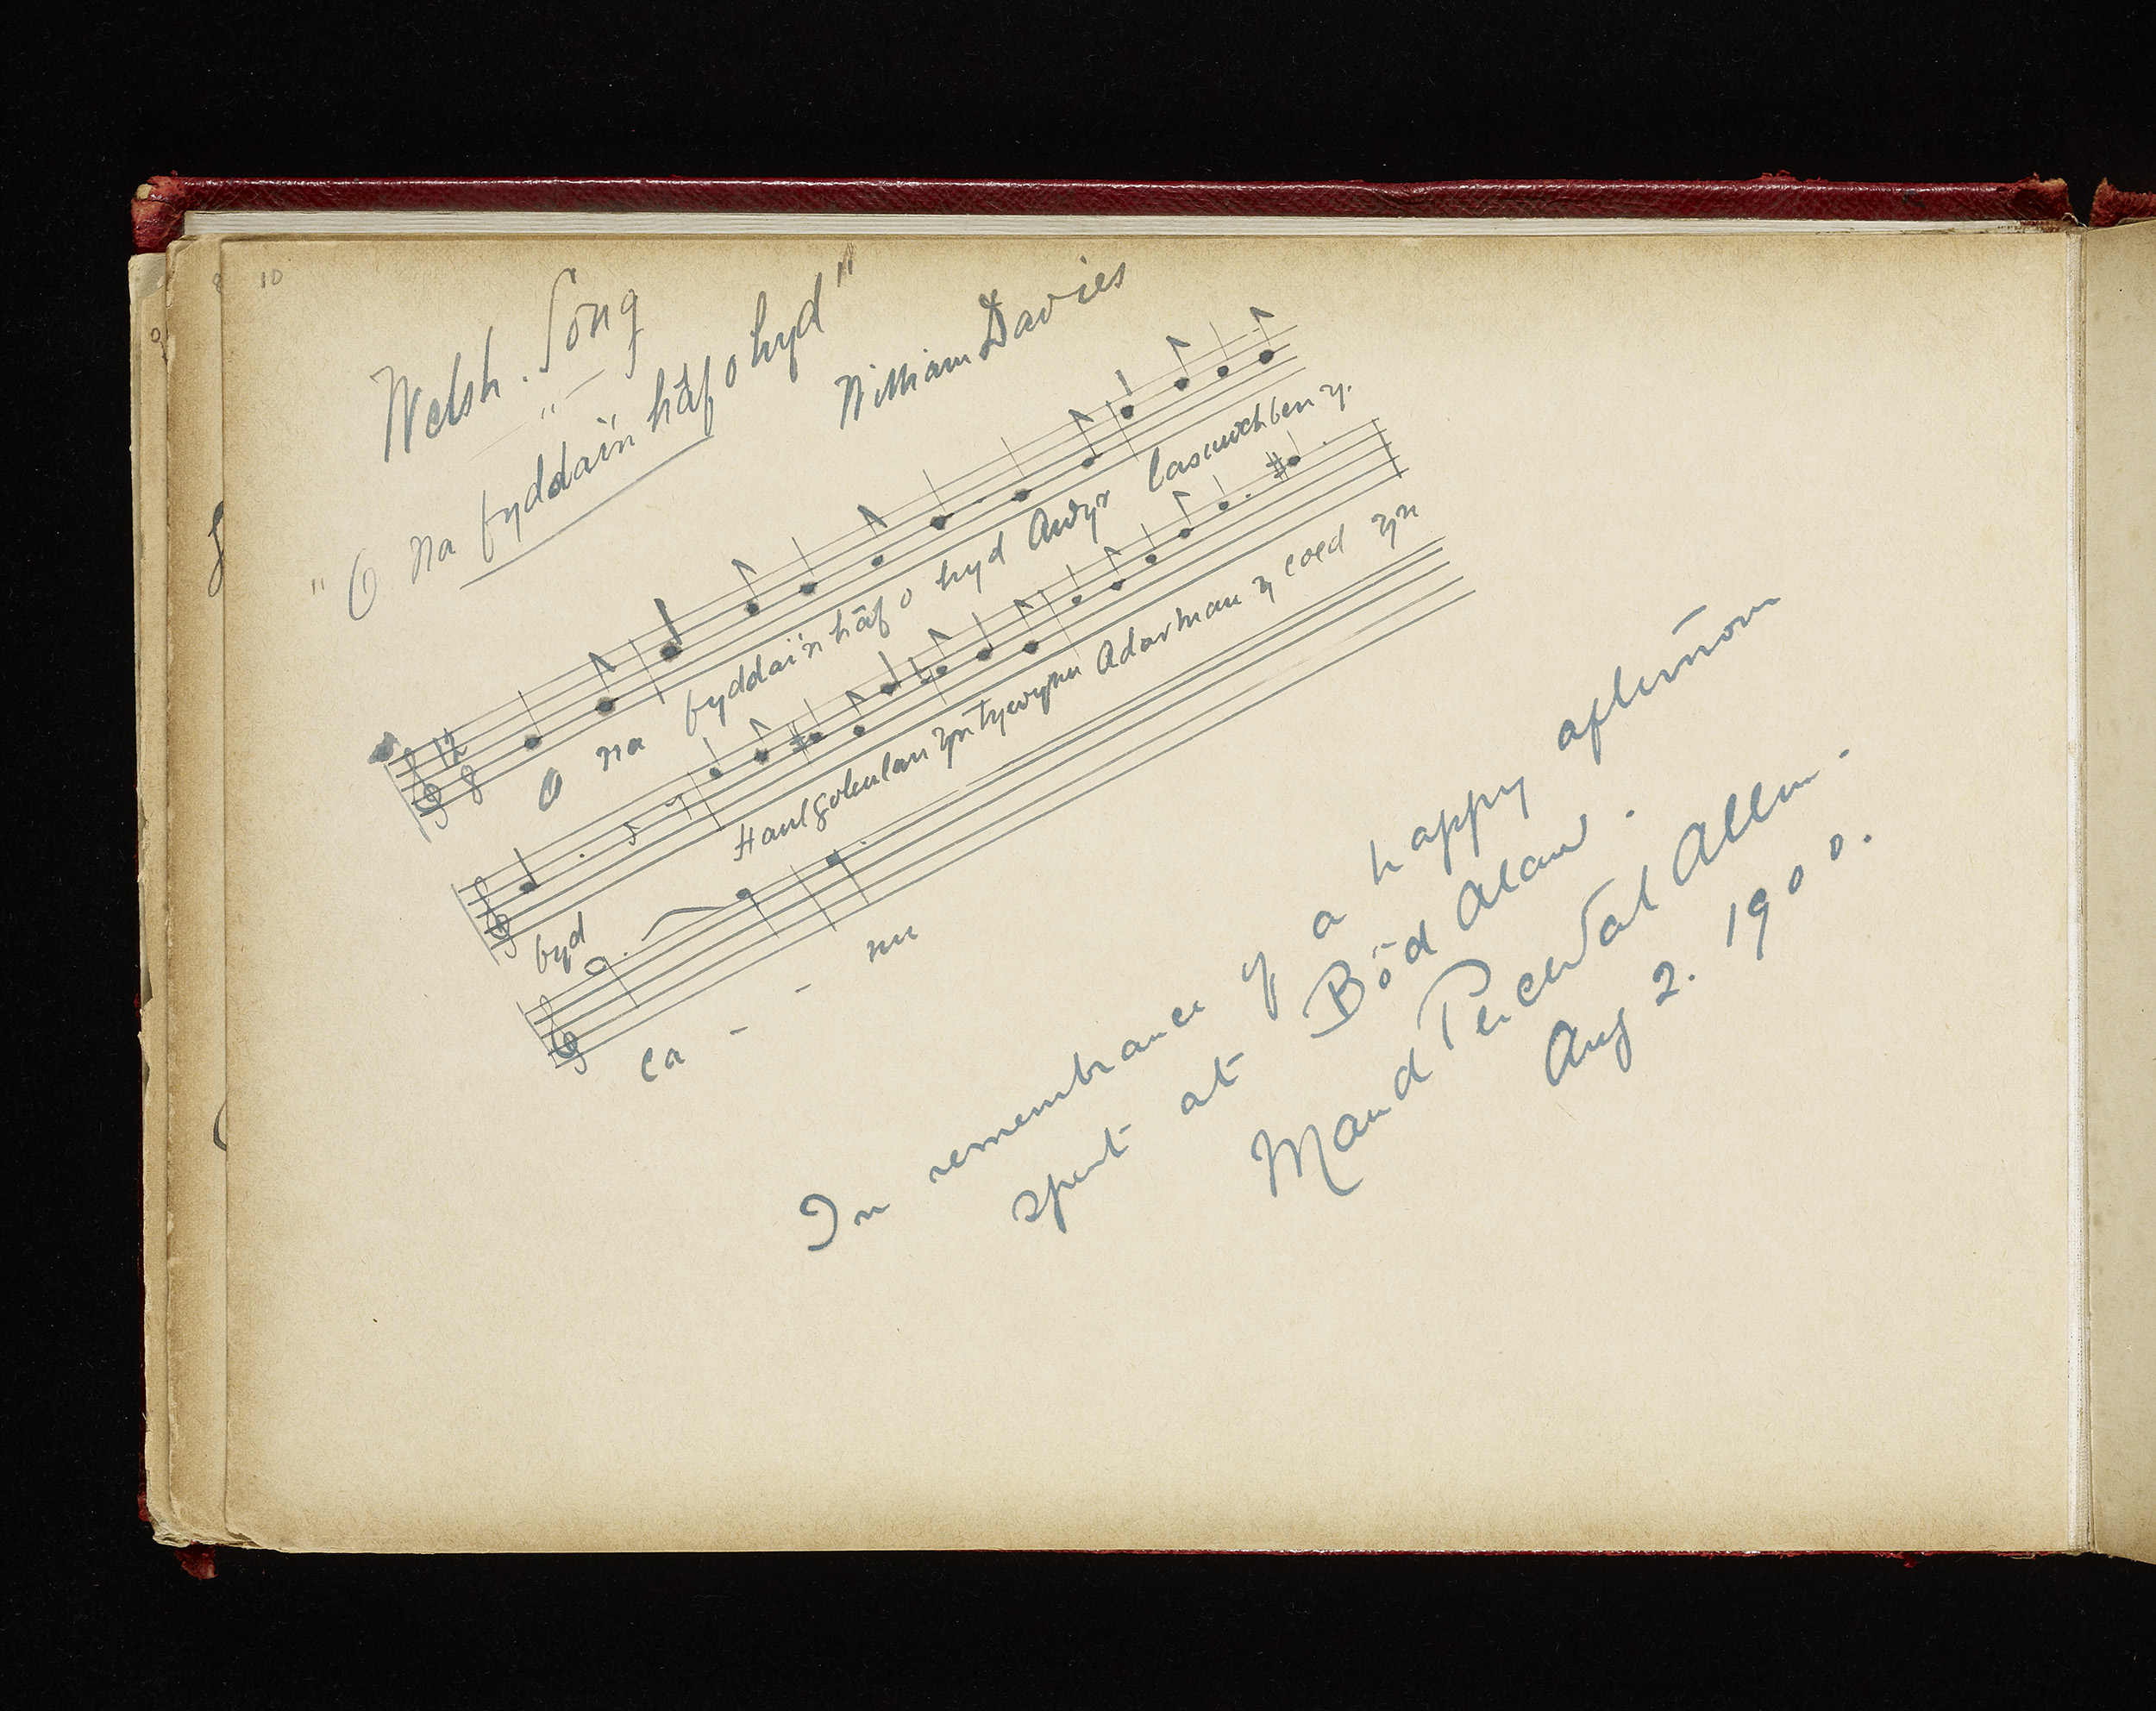 10
Welsh. Song
"O na byddai'n hâf o hyd"
William Davies
12
8
O na byddai'n hâf o hyd Awyr las uwchben y
byd Haul goleulan yn tywynu Adar mân y coed yn
ca - - nu
In remembrance of a happy afternoon
spent at Bôd Alaw.
Maud Perceval Allen.
Aug 2. 1900.